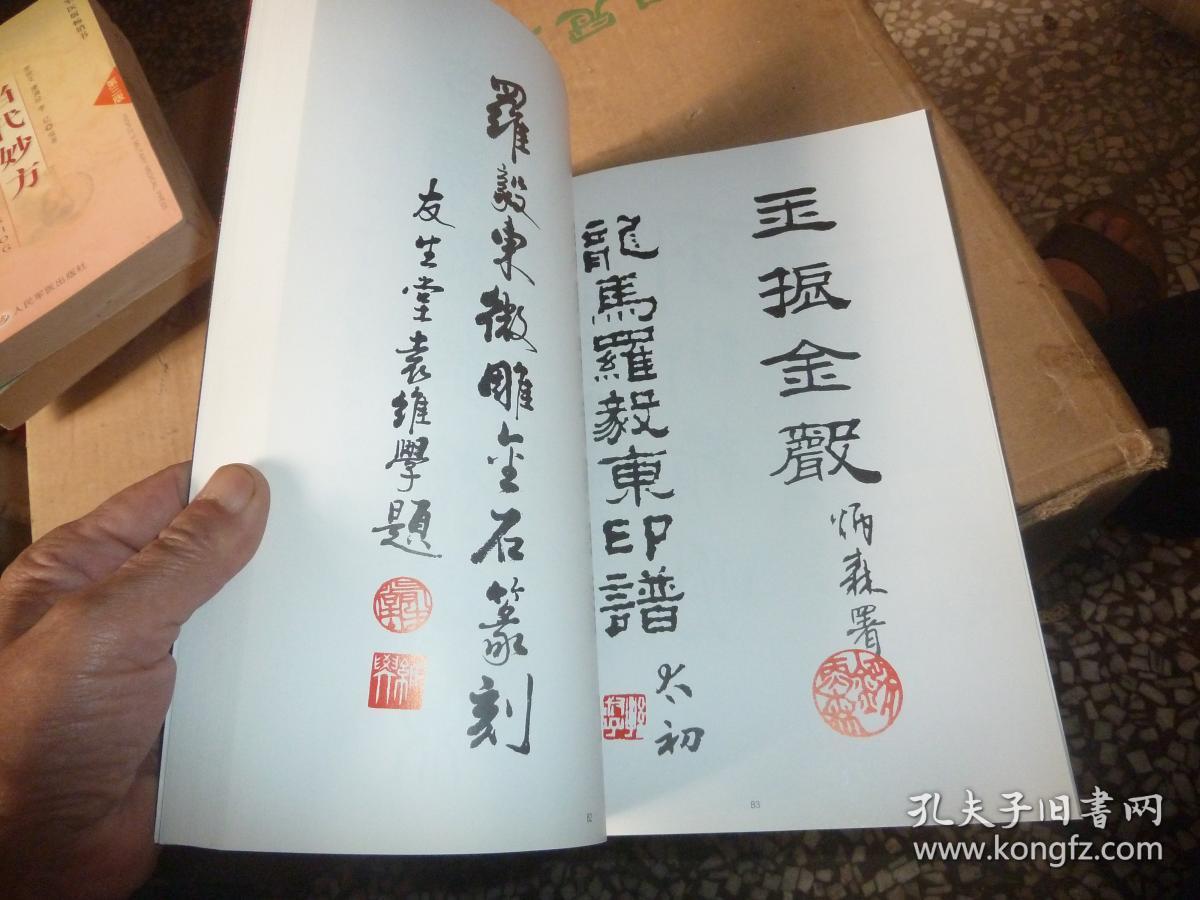 羅毅東微雕金石篆刻
友生堂袁維學題
玉振金聲
炳森署
龍馬羅毅東印譜
大初
82
83
当代妙方
人民军医出版社
孔夫子旧書网
www.kongfz.com